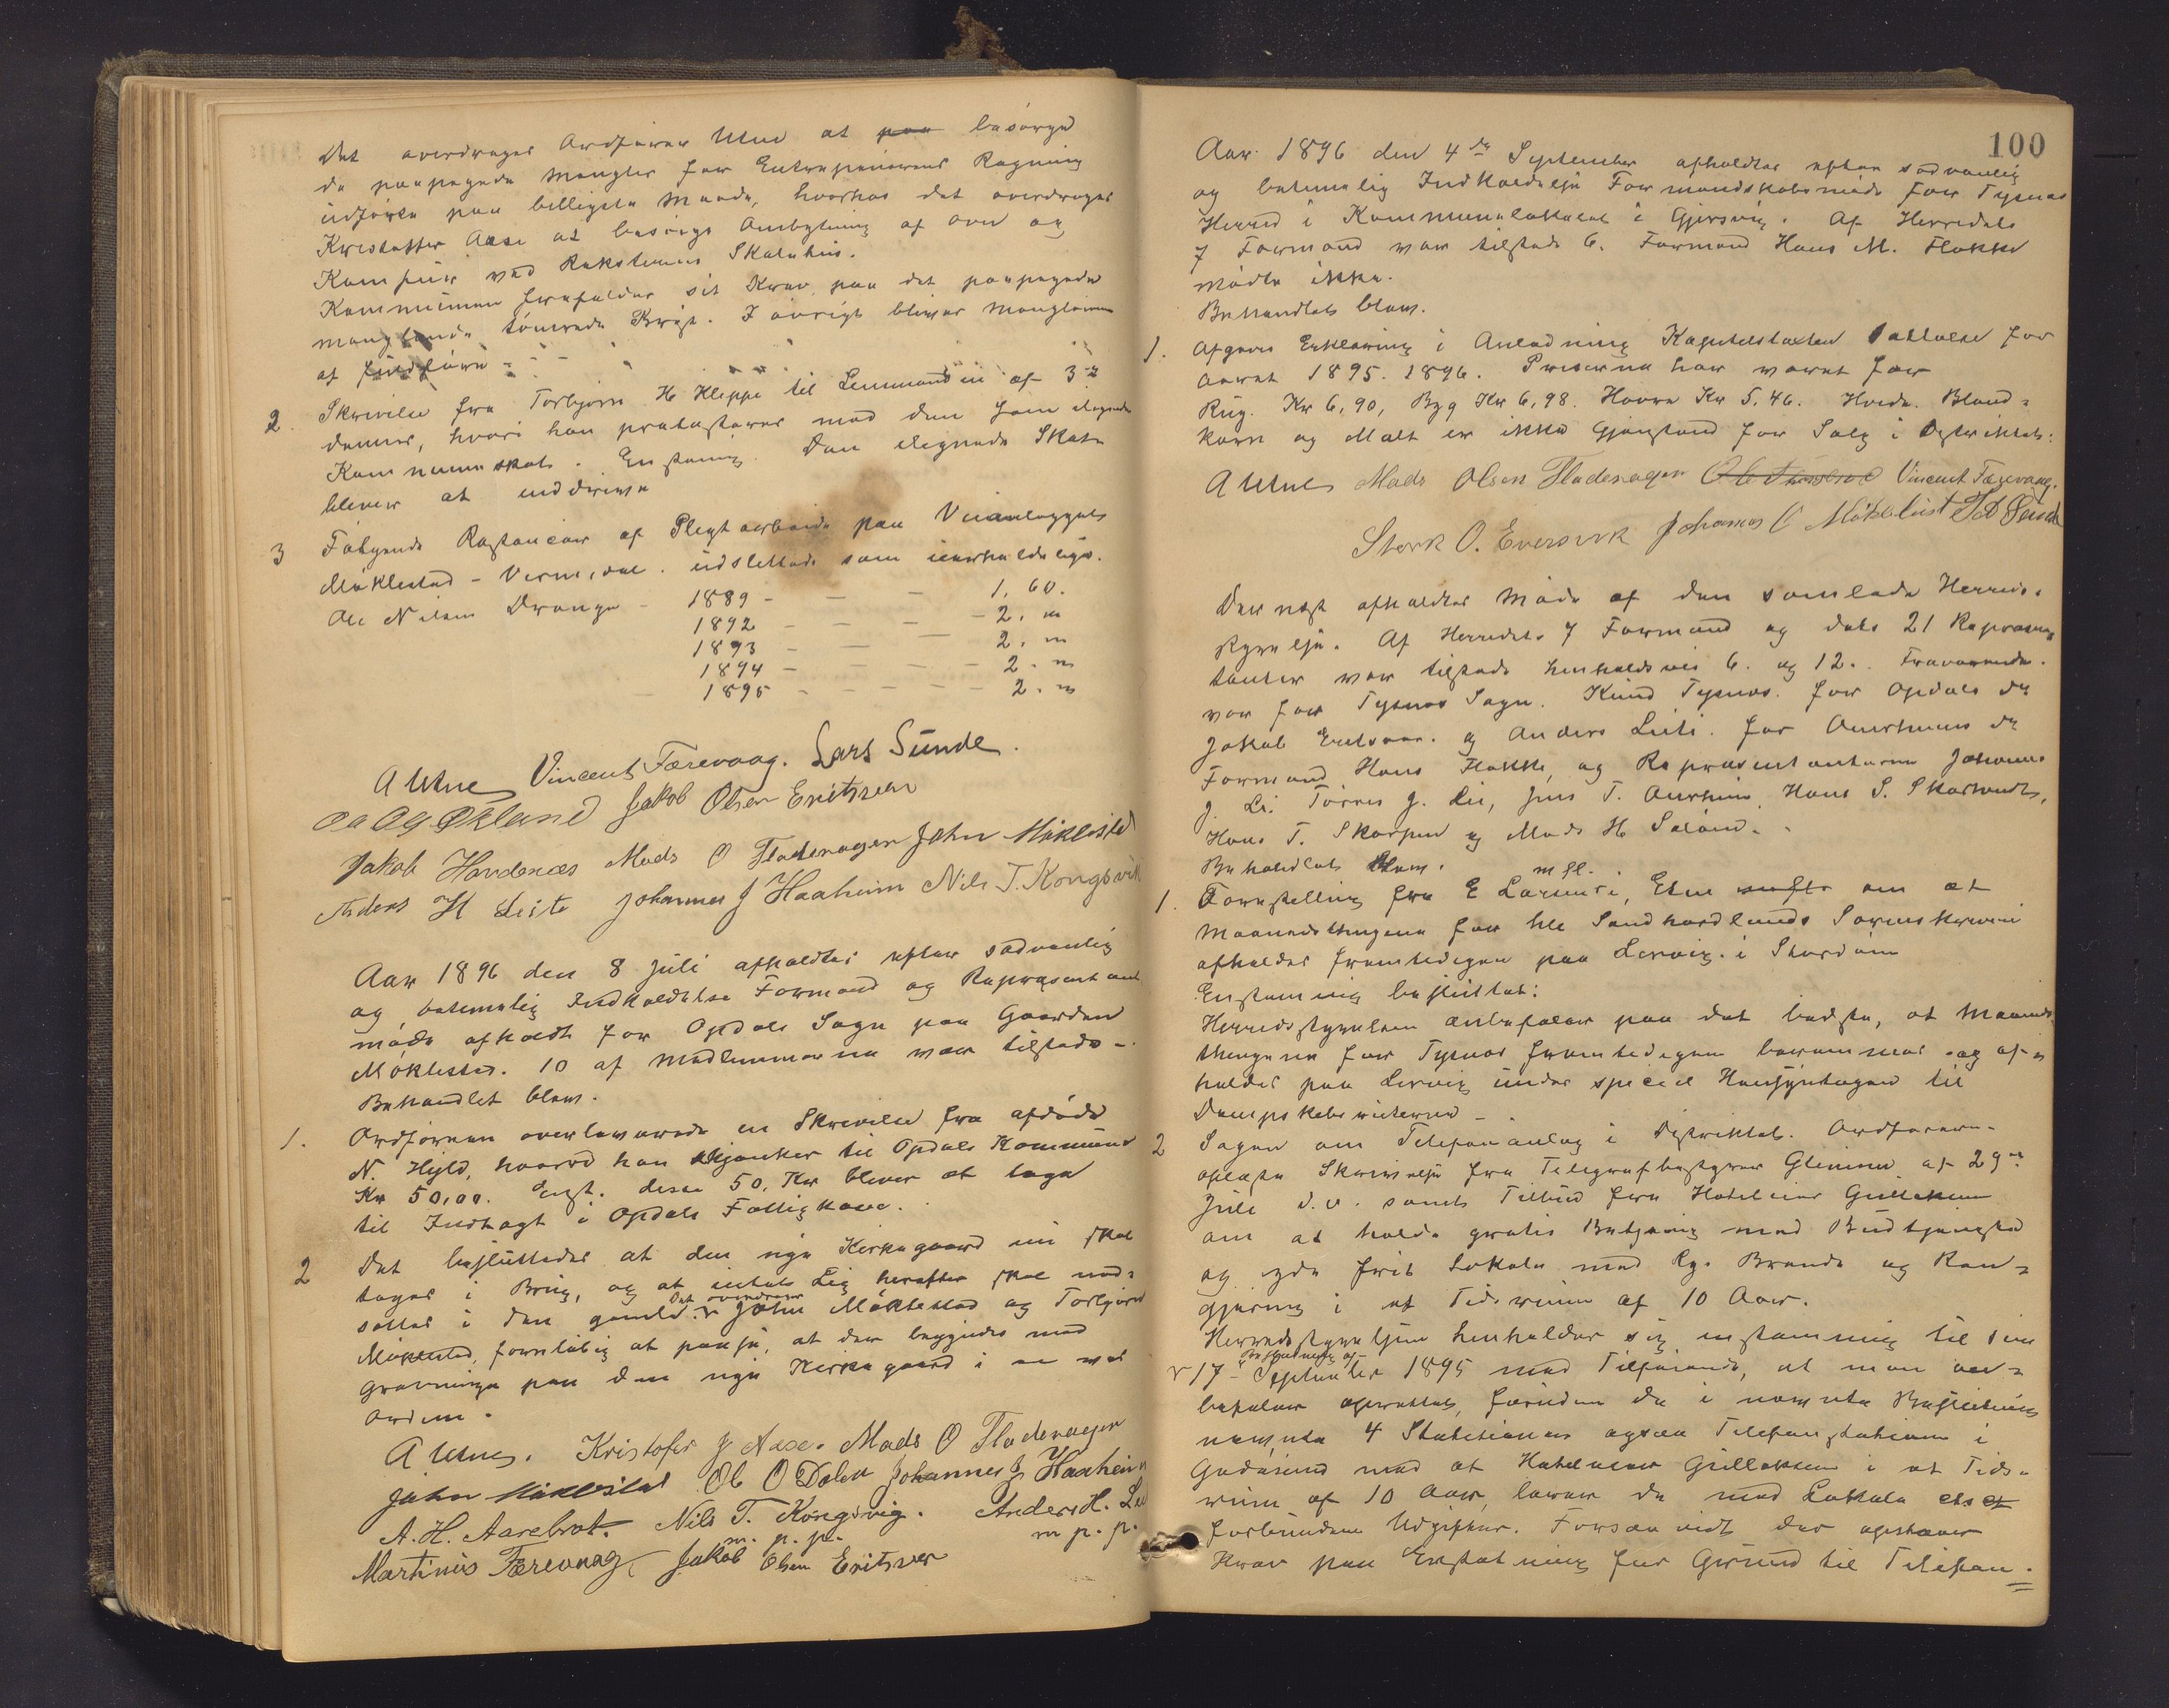 Det overdrages Ordfører Utne at paa besørge
de paapegede Mangler for Entreprenørens Regning
udførte paa billigste Maade, hvorhos det overdrages
Kristoffer Aase at besørge Ombytning af Ovn og
Komfur ved Rakstenens Skolehus.
Kommunen frafalder sit Krav paa det paapegede
manglende tømrede Brygt. I øvrigt bliver Manglerne
at
2. Skrivelse fra Torbjørn H Kleppe til Lensmanden af 3die
dennes, hvori han protesterer mod den ham ilignede
Kommuneskat. Enstemmig. Den ilignede Skat
bliver at inddrive
3 Følgende Restancer af Pligtarbeide paa Veianlægget
Møklestad - Vermedal. udslettede som uerholdelige.
Ole Nilsen Drange - 1889 - - - 1, 60.
1892 - - - - 2. "
1893 - - - 2. "
1894 - - - - 2. "
1895 - - - - - 2. "
A Utne Vincent Færevaag. Lars Sunde.
Oa Ag Økland Jakob Olsen Eritsver
Jakob Hovdenæs Mads O Fladerager John Møklestad
Anders H Leite Johannes J Haaheim Nils T. Kongsvik
Aar 1896 den 8 Juli afholdtes efter sedvanlig
og betimelig Indkaldelse Formand og Repræsentant
møde afholdt for Opdals Sogn paa Gaarden
Møklestad. 10 af Medlemmerne var tilstede.
Behandlet blev.
1. Ordføreren overleverede en Skrivelse fra afdøde
N. Hyld, hvorved han skjænker til Opdals Kommune
Kr 50,00. Enst. disse 50. Kr bliver at tage
til Indtægt i Opdals Fattigkasse.
2 Det besluttedes at den nye Kirkegaard nu skal
tages i Brug, og at intet Lig herefter skal ned-
sættes i den gamle. Det overdrages John Møklestad og Torbjørn
Møklestad, foreløbig at paase, at der begyndes med
Gravninge paa den nye Kirkegaard i en vel
Orden.
A Utne. Kristofer J Aase. Mads O Fladerager
John Møklestad Ole O Dalen Johannes J Haaheim
A. H. Aarebrot. Nils T. Kongsvig. Anders H. Lei
m. p. p. m p. p.
Martinus Færevaag. Jakob Olsen Eritsver
100
Aar 1896 den 4de September afholdtes efter sedvanlig
og betimelig Indkaldelse Formandskabsmøde for Tysnes
Herred i Kommunelokalet i Gjersvig. Af Herredets
7 Formænd var tilstede 6. Formand Hans M. Flakke
mødte ikke.
Behandlet blev.
1. Afgaves Erklæring i Anledning Kapitelstaxten Saltoldt for
Aaret 1895-1896. Priserne har været for
Rug. Kr 6,90, Byg Kr 6,98. Havre Kr 5.46. Hvede. Bland-
korn og Malt er ikke Gjenstand for Salg i Distriktet.
A Utne Mads Olsen Fladerager Vincent Færevaag.
Sterk O. Eversvik Johannes O Møklebust
Dernæst afholdtes Møde af den samlede Herreds-
styrelse. Af Herredets 7 Formænd og dets 21 Repræsen-
tanter var tilstede henholdsvis 6. og 12. Fraværende.
var for Tysnes Sogn. Knud Tysnes. for Opdals de
Jakob Eritsver. og Anders Leite. for Onerheims de
Formand Hans Flakke, og Repræsentanterne Johannes
J. Lie. Tørres J. Lie, Jens T. Onerheim, Hans S. Skarveid,
Hans T. Skarpen og Mads H Søland.
Behandlet blev.
1. Forestilling fra E Larsen i, Etne m fl. om at
Maanedsthingene for hle Søndhordlands Sorenskriveri
afholdes fremtidigen paa Lervig. i Stordøen
Enstemmig besluttet:
Herredsstyrelsen anbefaler paa det bedste, at Maaneds-
thingene for Tysnes fremtidigen berammes og af-
holdes paa Lervig under speciel Hensyntagen til
Dampskibsruterne.
2 Sagen om Telefonanlæg i Distriktet. Ordføreren.
oplæste Skrivelse fra Telegrafbestyrer Glimme af 29de
Juli d. a. samt Tilbud fra Hoteleier Gullaksen
om at holde gratis Betjening med Budtjeneste
og yde frit Lokale med Lys Brænde og Ren-
gjøring i et Tidsrum af 10 Aar.
Herredsstyrelsen henholder sig enstemmig til sin
Beslutning af
17 - September 1895 med Tilføiende, at man an-
befaler oprettet, foruden de i nævnte Beslutning
nævnte 4 Stationer ogsaa Telefonstation i
Godøsund mod at Hoteleier Gullaksen i et Tids-
rum af 10 Aar, bærer de med Lokale
forbundne Udgifter. Forsaavidt der opstaar
Krav paa Erstatning for Grund til Telefon.